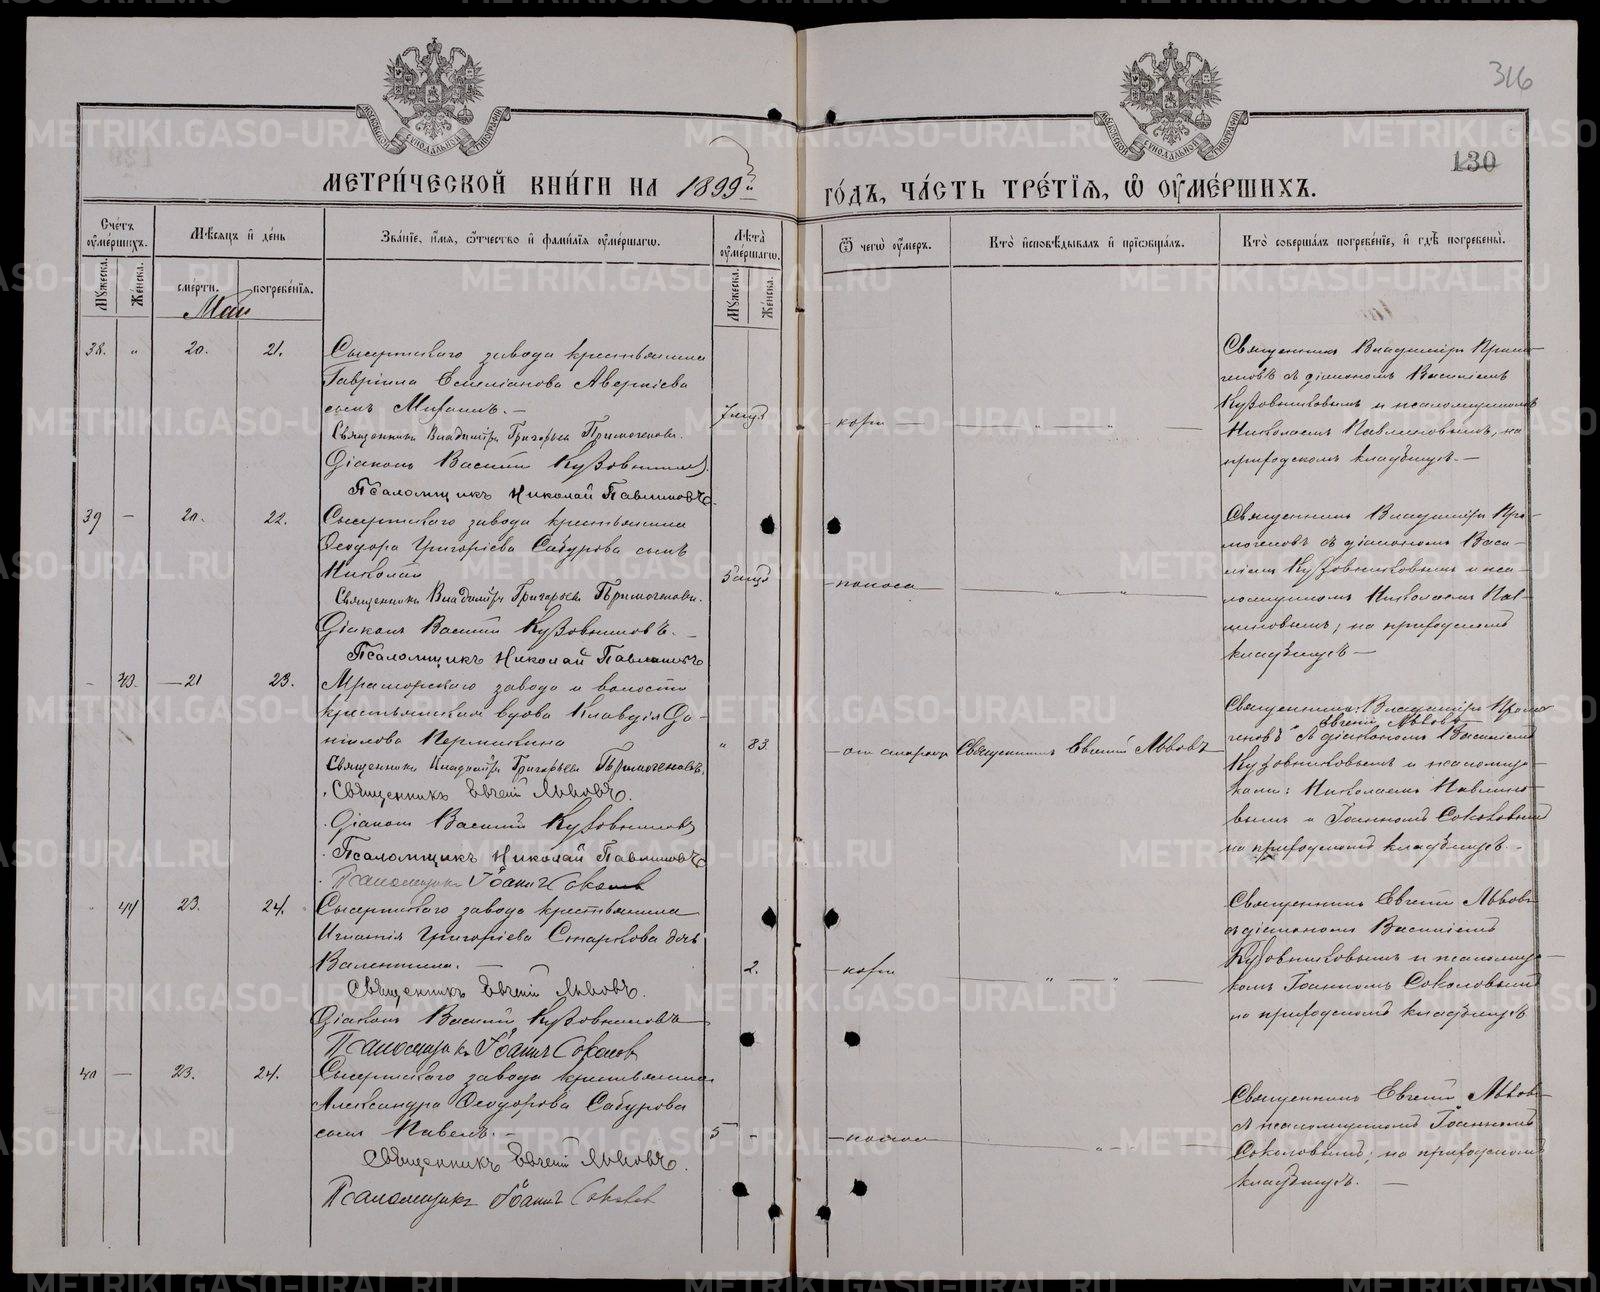 316
130
МЕТРИ́ЧЕСКОЙ КНИ́ГИ НА 1899й ГО́ДЪ, ЧА́СТЬ ТРЕ́ТІѦ, Ѽ ОУМЕ́РШИХЪ.
Счетъ оумершихъ.
Мѣсяцъ и день
Званіе, имя, отчество и фамилія оумершагѡ.
Лѣта оумершагѡ.
Ѿ чегѡ оумеръ.
Кто исповѣдывалъ и пріобщалъ.
Кто совершалъ погребеніе, и гдѣ погребены.
Мужеска.
Женска.
смерти.
погребенія.
Мужеска.
Женска.
Май
38. " 20. 21.
Сысертскаго завода крестьянина
Гавріила Емеліанова Аверкіева
сынъ Михаилъ. —
Священникъ Владиміръ Григорьевъ
Діаконъ Василій Кузовниковъ
Псаломщикъ Николай Павлиновъ.
кори
Священникъ Владиміръ
геновъ съ діакономъ Василіемъ
Кузовниковымъ и псаломщикомъ
Николаемъ Павлиновымъ, на
приходскомъ кладбищѣ. —
39 — 20. 22.
Сысертскаго завода крестьянина
Ѳеодора Григоріева Сабурова сынъ
Николай
Священникъ Владиміръ Григорьевъ
Діаконъ Василій Кузовниковъ. —
Псаломщикъ Николай Павлиновъ
поноса
Священникъ Владиміръ
съ діакономъ Васи-
ліемъ Кузовниковымъ и пса-
ломщикомъ Николаемъ Пав-
линовымъ; на приходскомъ
кладбищѣ —
— 43. — 21 23.
Мраморскаго завода и волости
крестьянская вдова Клавдія Да-
нилова Пермикина
Священникъ Владиміръ Григорьевъ
Священникъ Евгеній Львовъ.
Діаконъ Василій Кузовниковъ
Псаломщикъ Николай Павлиновъ
Псаломщикъ Іоаннъ Соколовъ
" 83.
от старости
Священникъ Евгеній Львовъ
Священники: Владиміръ
Евгеній Львовъ
геновъ и съ діакономъ Василіемъ
Кузовниковымъ и псаломщи-
ками: Николаемъ Павлино-
вымъ и Іоанномъ Соколовымъ
на приходскомъ кладбищѣ. —
44 23. 24.
Сысертскаго завода крестьянина
Игнатія Григоріева Старкова дочь
Валентина. —
Священникъ Евгеній Львовъ.
Діаконъ Василій Кузовниковъ
Псаломщикъ Іоаннъ Соколовъ
2.
кори
Священникъ Евгеній Львовъ
съ діакономъ Василіемъ
Кузовниковымъ и псаломщи-
комъ Іоанномъ Соколовымъ
на приходскомъ кладбищѣ
40 — 23. 24.
Сысертскаго завода крестьянина
Александра Ѳеодорова Сабурова
сынъ Павелъ. —
Священникъ Евгеній Львовъ.
Псаломщикъ Іоаннъ Соколовъ
5 —
поноса
Священникъ Евгеній Львовъ
съ псаломщикомъ Іоанномъ
Соколовымъ; на приходскомъ
кладбищѣ. —
METRIKI.GASO-URAL.RU